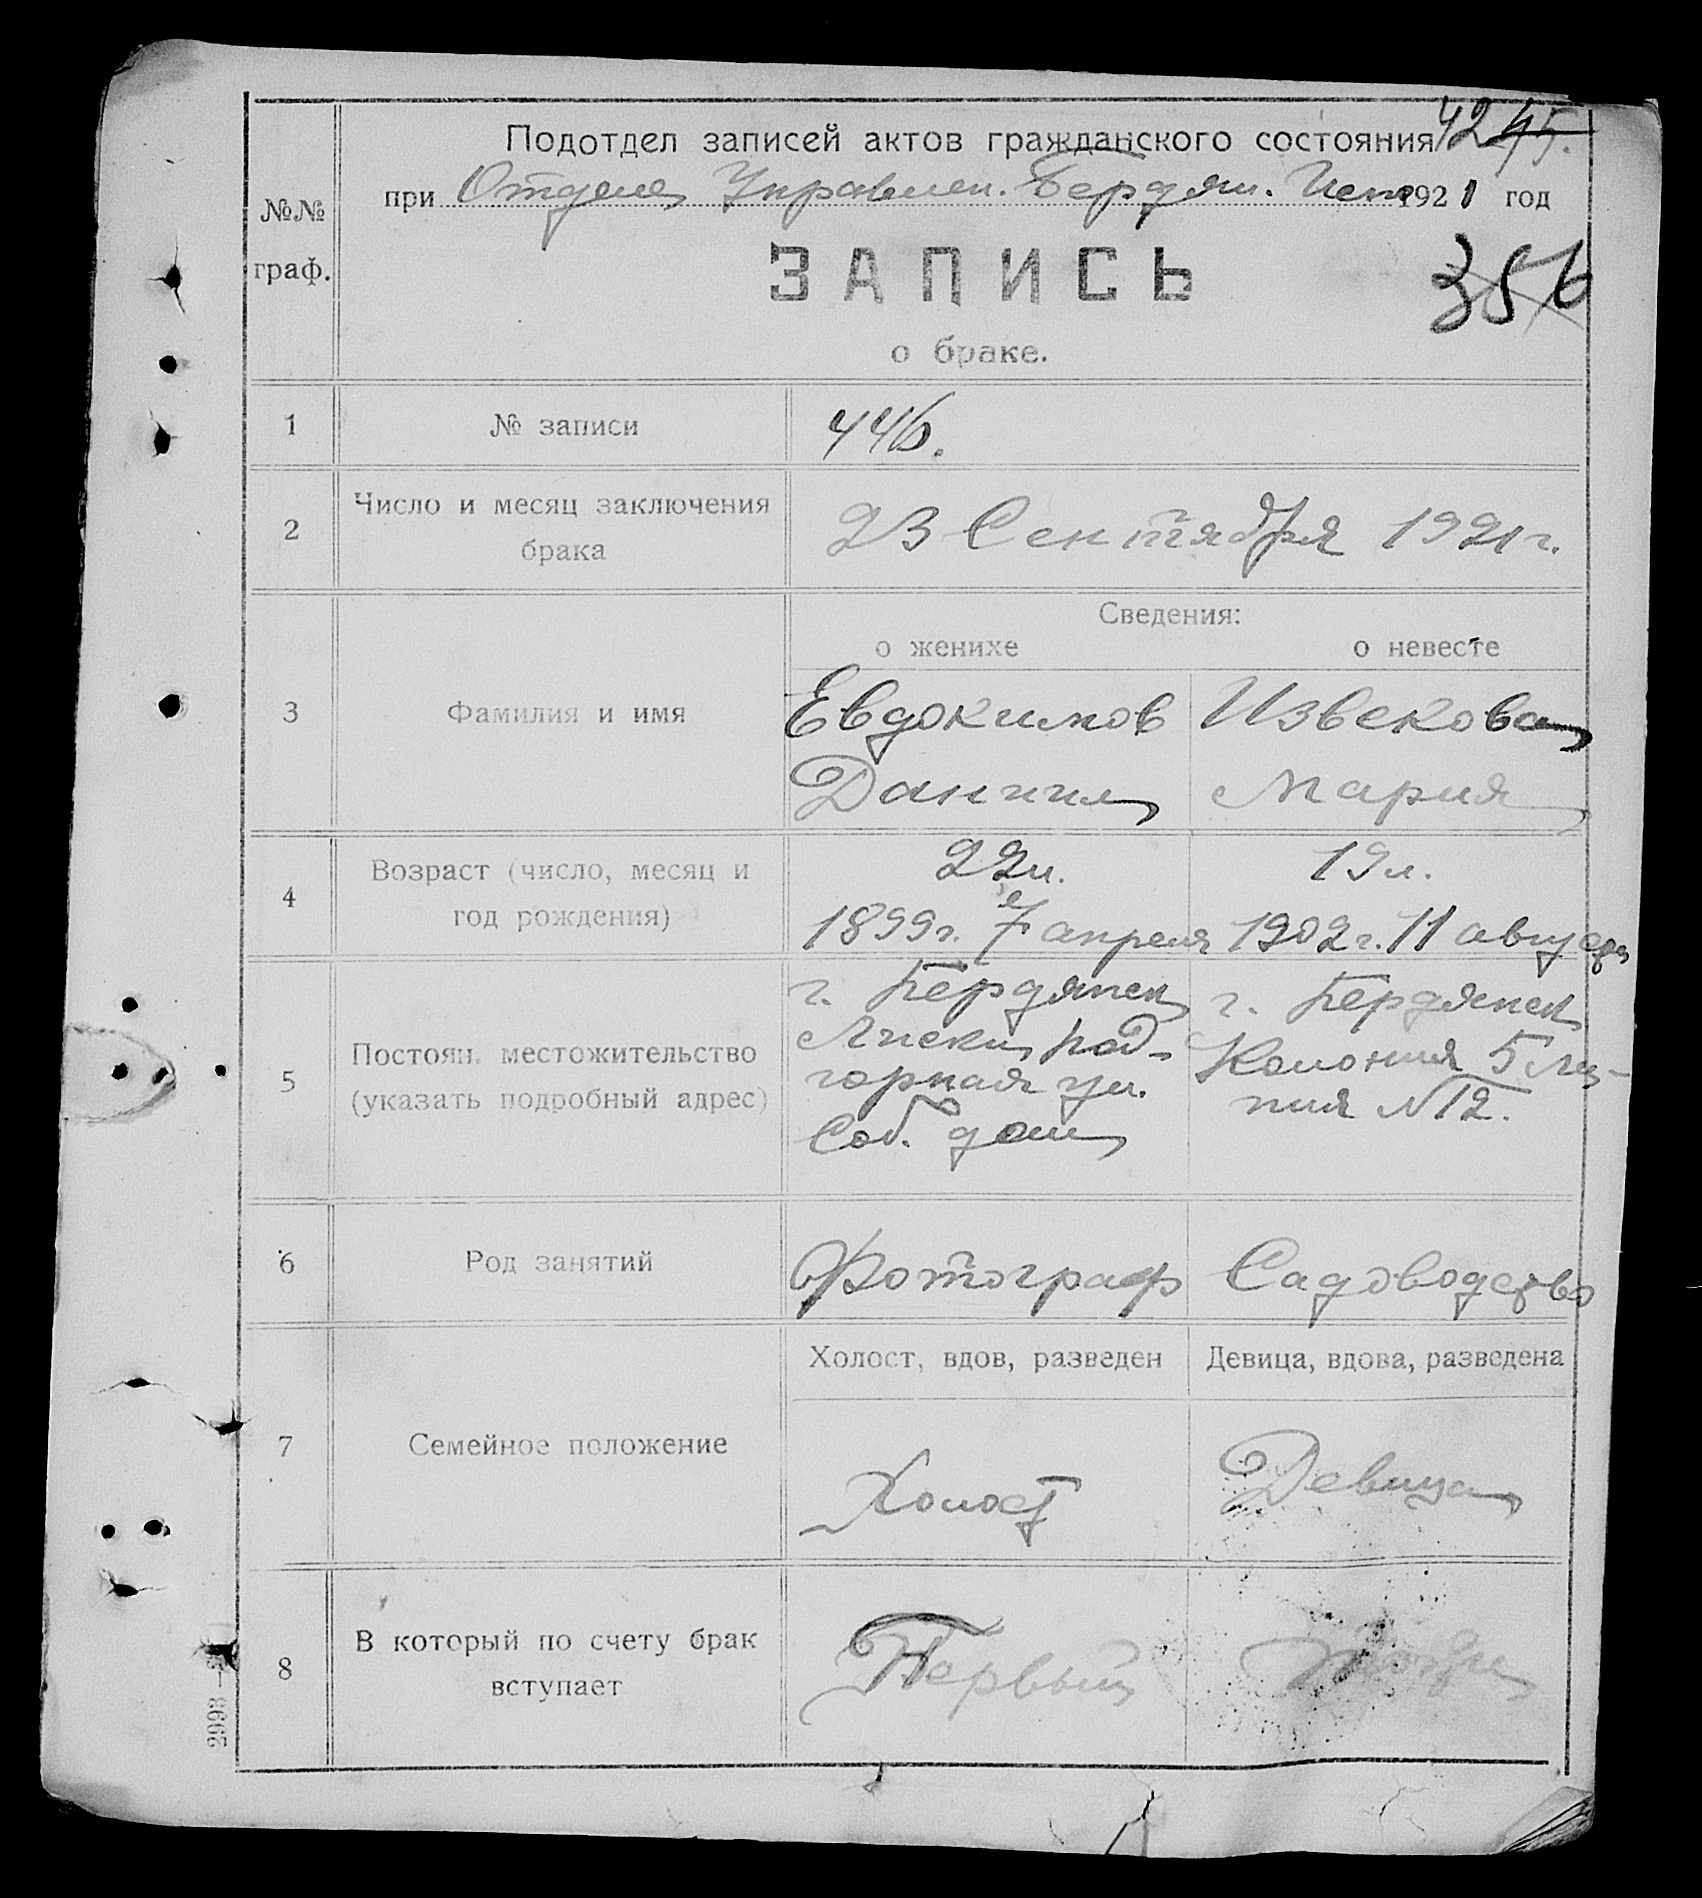 Подотдел записей актов гражданского состояния 42 45.
при Отделе Управлен. Бердян. Исп 1921 год
№№
граф.
ЗАПИСЬ
356
о браке.
1 № записи 446.
2 Число и месяц заключения брака 23 Сентября 1921 г.
Сведения:
о женихе о невесте
3 Фамилия и имя Евдокимов Извекова
Даниил Мария
4 Возраст (число, месяц и год рождения) 22 л. 19 л.
1899 г. 7 апреля 1902 г. 11 августа
5 Постоян. местожительство (указать подробный адрес)
г. Бердянск г. Бердянск
Лиски, Под- Колония 5 Ли-
горная ул. ния № 12.
Соб. дом
6 Род занятий Фотограф Садоводство
Холост, вдов, разведен Девица, вдова, разведена
7 Семейное положение Холост Девица
8 В который по счету брак вступает Первый
2998